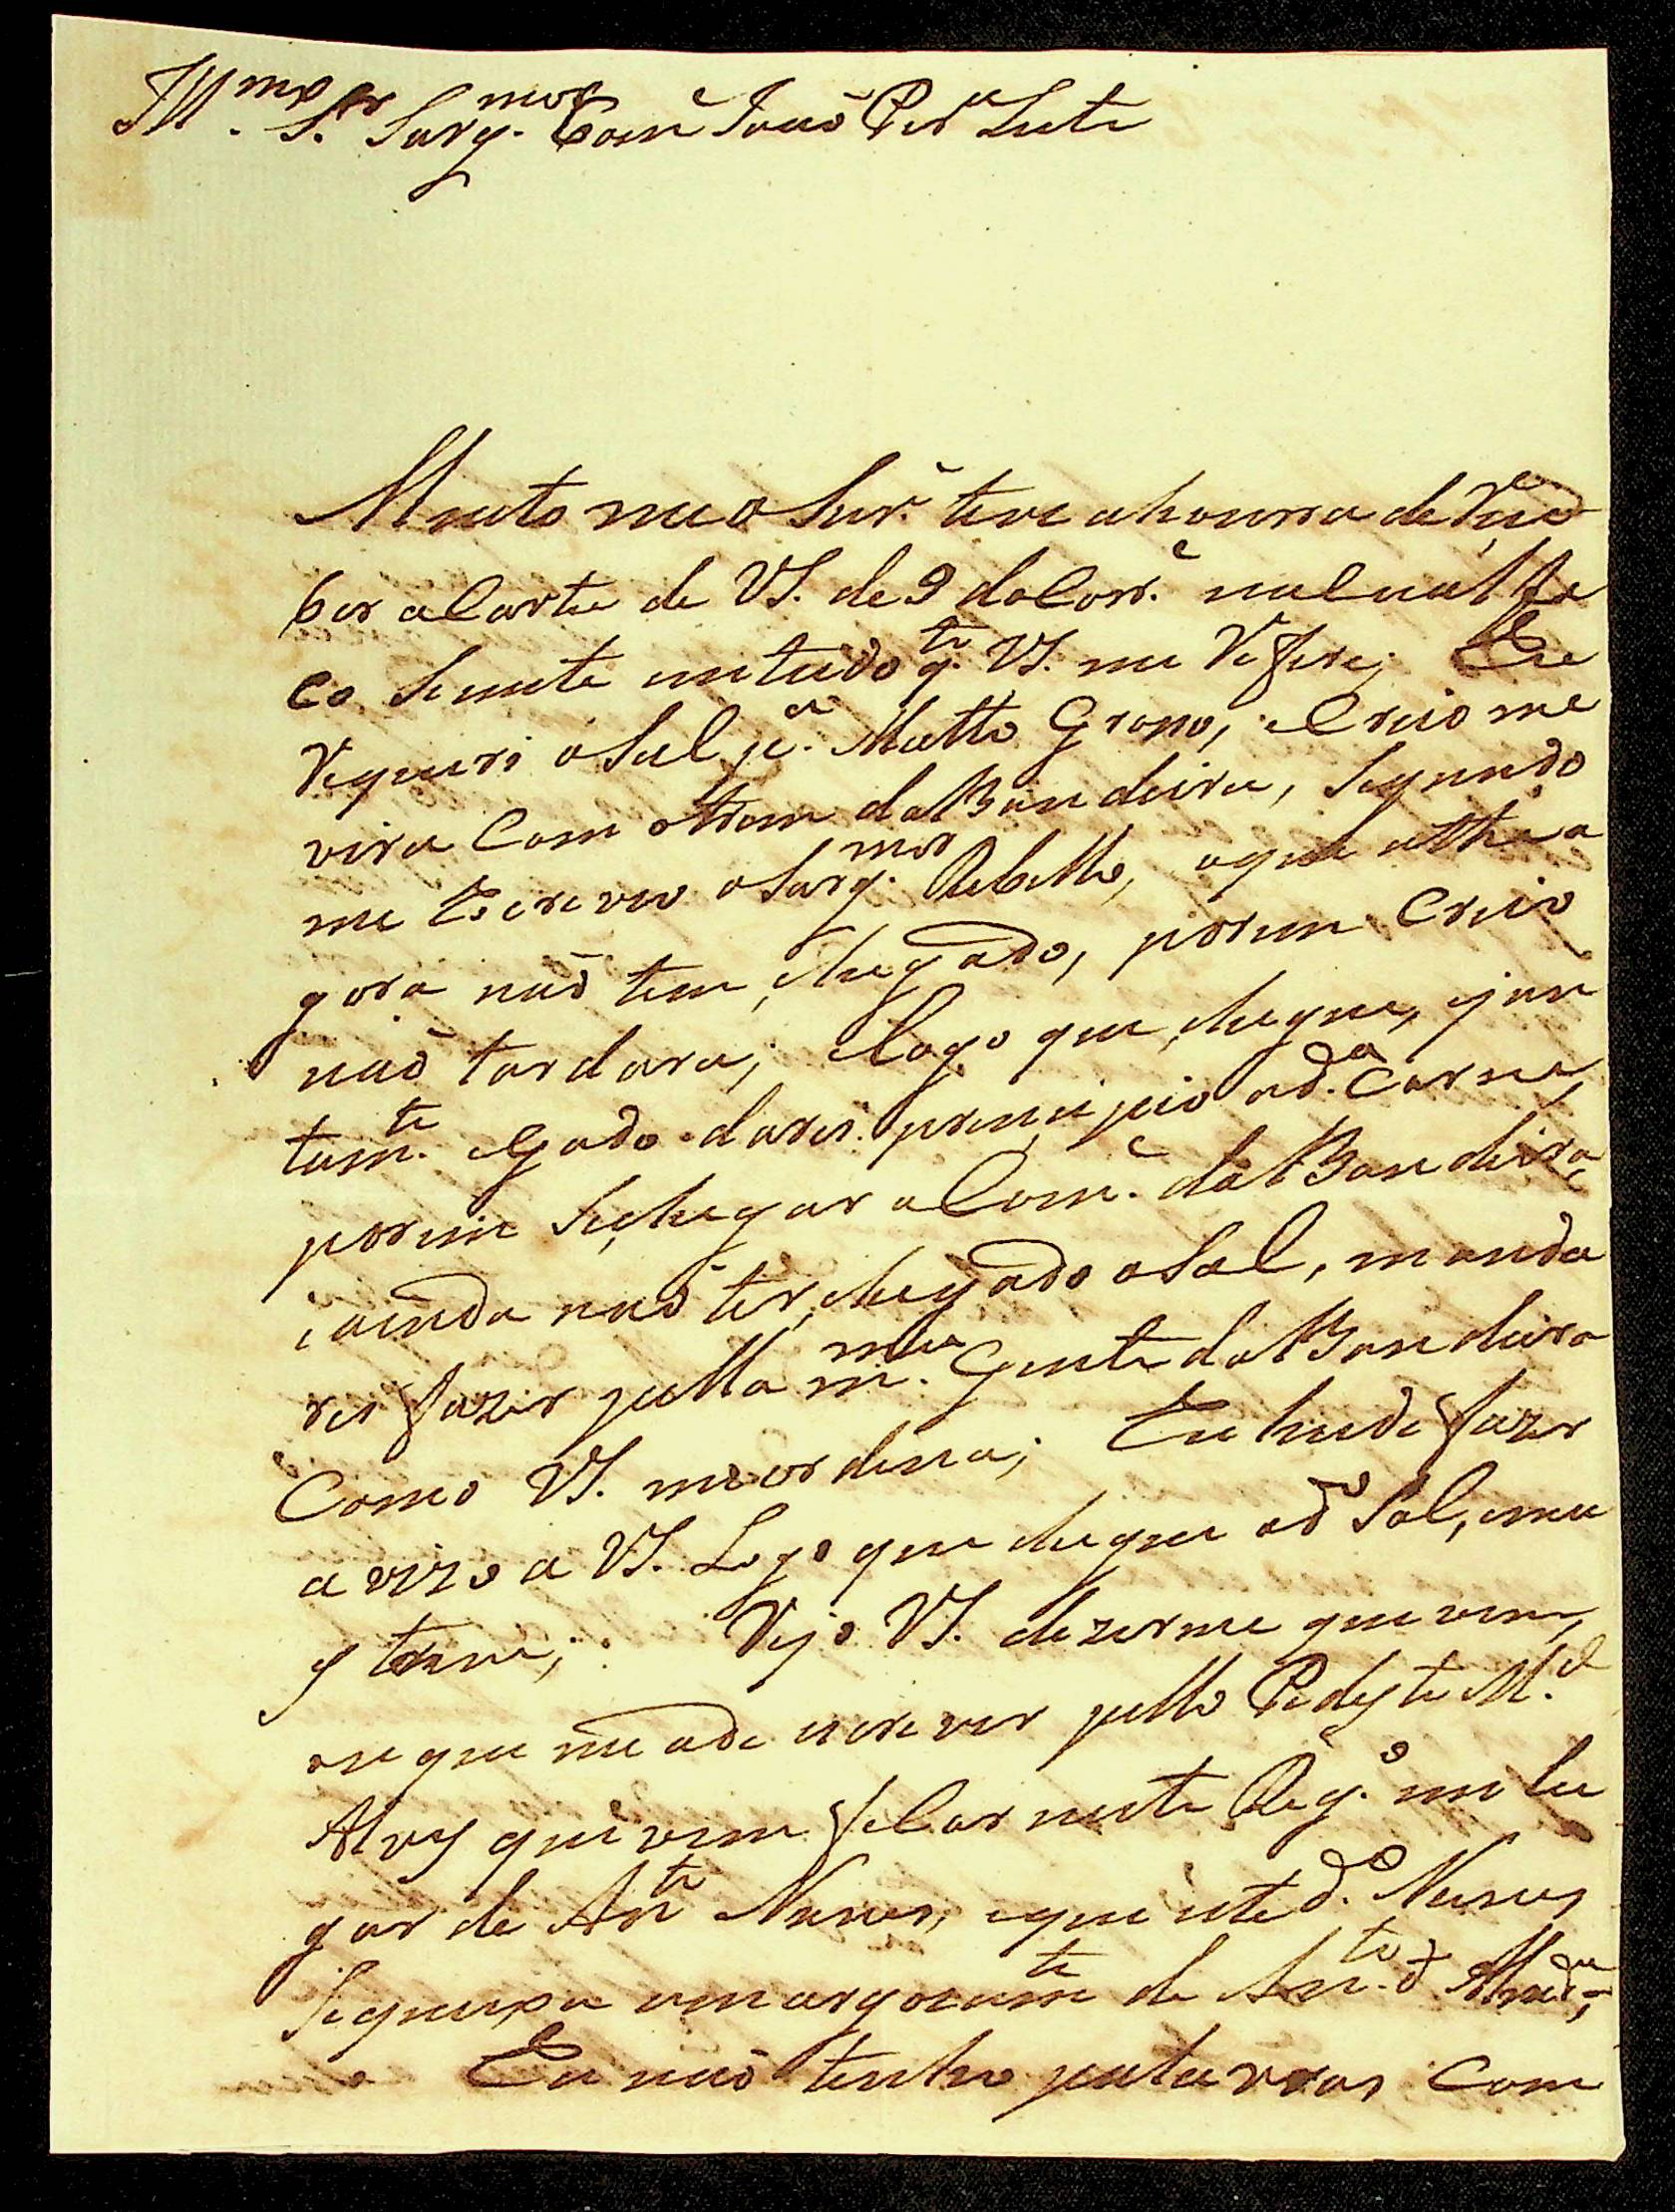 Ill.mo S.r Sarg. mor Com.e João Per.a Leite
Muito meo Snr. tive a honrra de Rece
ber a Carta de VS. de 9 do Corr.e na qual fi
co siente em tudo q. VS. me Refere; Eu
Requeri o Sal p.a Matto Groço, e Creio me
vira Com o trem da Bandeira, segundo
me Escreveo o Sarg. mor Rebello, oque athe a
gora naõ tem chegado, porem Creio
naõ tardara; e logo que chegue, e jun
tam.te o Gado darei principio ad.a Carne,
porem se chegar a Com.e da Bandeira,
e ainda naõ ter chegado o Sal, manda
rei fazer pella m.ma Gente da Bandeira
Como VS. me ordena; Eu heide fazer
avizo a VS. Logo que chegue od.o Sal, e me
Vejo VS. dizerme que vem,
eque me ade escrever pello Pedeste M.el
Alvz que vem ficar neste Reg.o em lu
gar de Ant.o Nunes, eque este d.o Nunes
se queixa amargoram.te de Ant.o d Alm.da,
Eu naõ tenho palavras Com